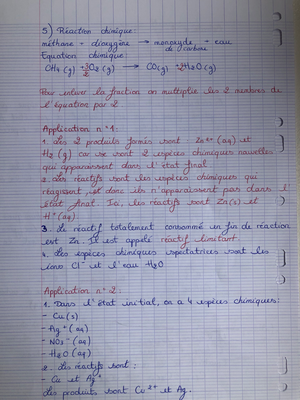 5) Réaction chimique:
méthane + dioxygène → monoxyde + eau
de carbone
Equation chimique:
CH4(g) + 3/2 O2(g) → CO(g) + 2H2O(g)
Pour enlever la fraction on multiplie les 2 membres de
l'équation par 2
Application n°1:
1. Les 2 produits formés sont Zn2+ (aq) et
H2(g) car se sont 2 espèces chimiques nouvelles
qui apparaissent dans l'état final
2. Les réactifs sont les espèces chimiques qui
réagissent, et donc ils n'apparaissent pas dans l'
état final. Ici, les réactifs sont Zn(s) et
H+(aq)
3. Le réactif totalement consommé en fin de réaction
est Zn. Il est appelé réactif limitant.
4. Les espèces chimiques spectatrices sont les
ions Cl- et l'eau H2O
Application n°2:
1. Dans l'état initial, on a 4 espèces chimiques:
- Cu(s)
- Ag+(aq)
- NO3-(aq)
- H2O(aq)
2. Les réactifs sont:
- Cu et Ag+
Les produits sont Cu2+ et Ag.